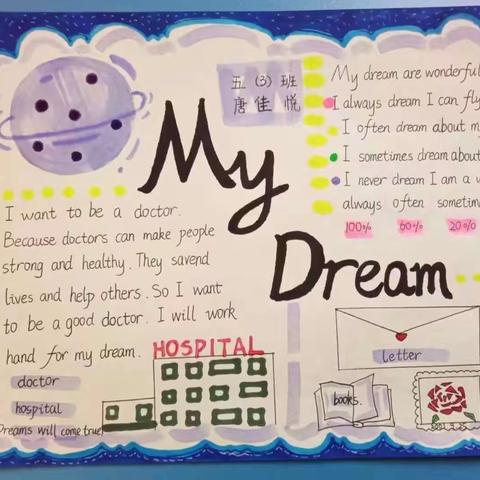 My
Dream
五(3)班
唐佳悦
I want to be a doctor.
Because doctors can make people
strong and healthy. They savend
lives and help others. So I want
to be a good doctor. I will work
hand for my dream.
HOSPITAL
doctor
hospital
Dreams will come true!
My dream are wonderful
I always dream I can fly
I often dream about
I sometimes dream about
I never dream I am a
always often
100% 60% 20%
letter
books.